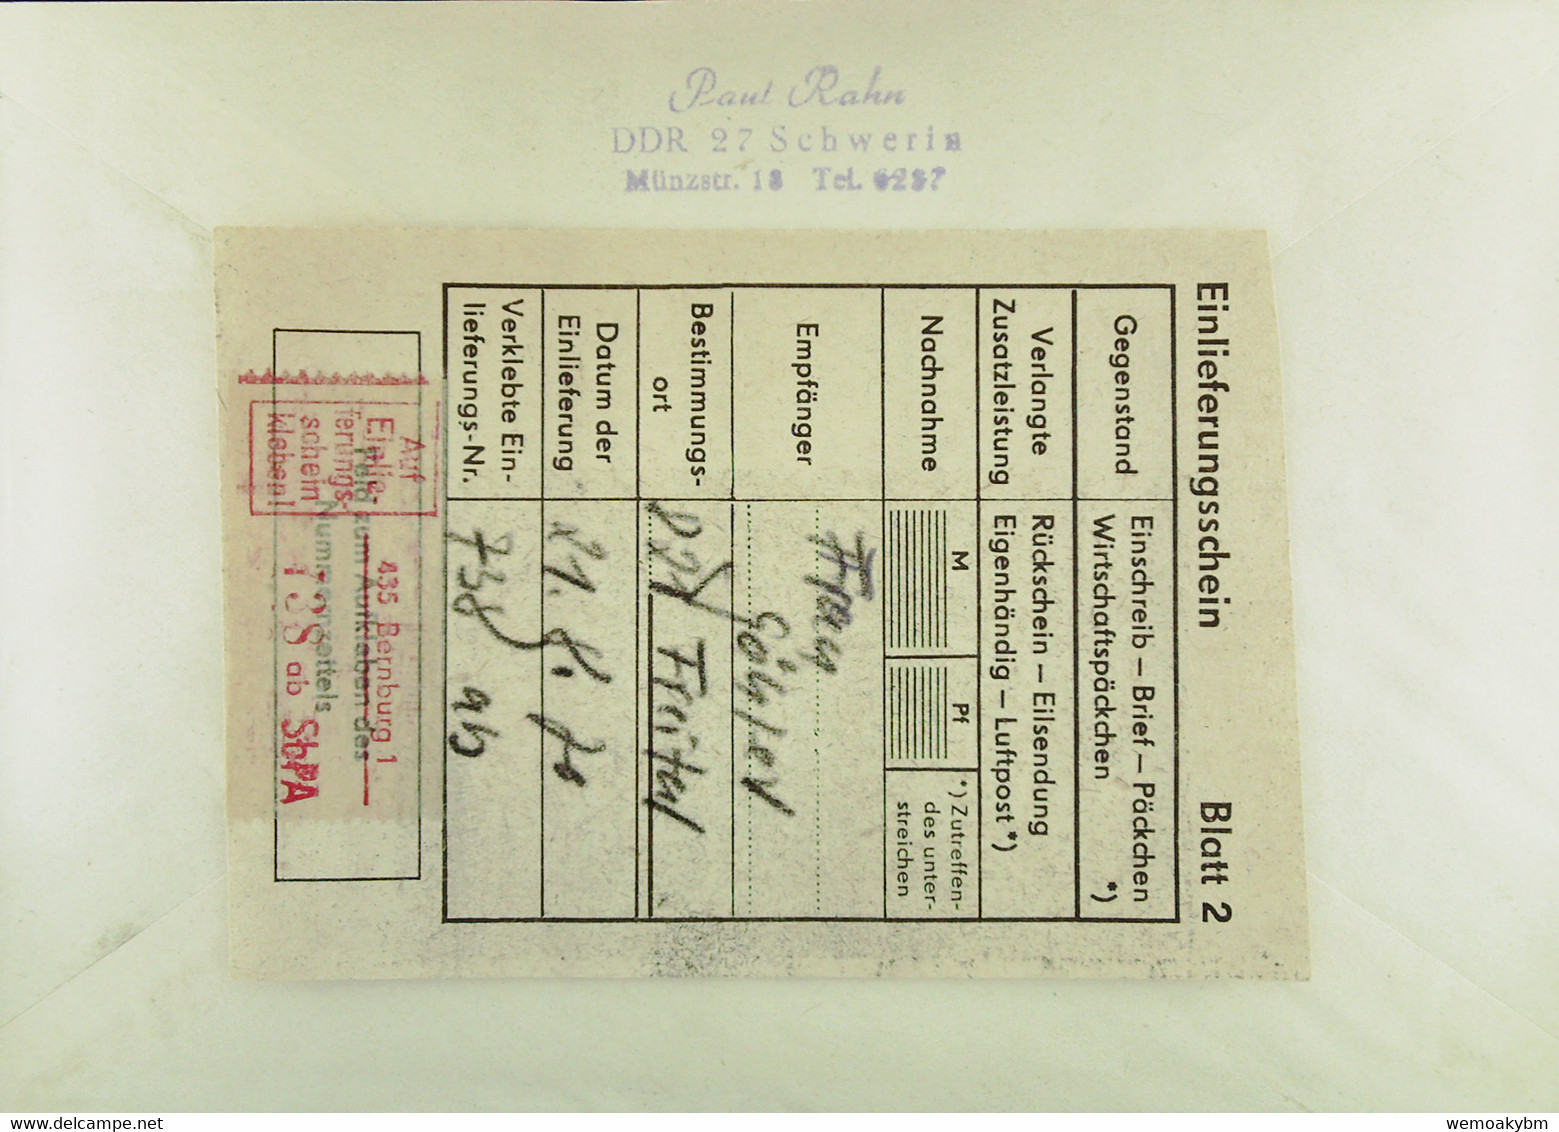 Paul Rahn
DDR 27 Schwerin
Münzstr. 18 Tel. 6287
Einlieferungsschein Blatt 2
Gegenstand
Einschreib – Brief – Päckchen
Wirtschaftspäckchen *)
Verlangte
Zusatzleistung
Rückschein – Eilsendung
Eigenhändig – Luftpost *)
Nachnahme
M
Pf
*) Zutreffen-
des unter-
streichen
Empfänger
Frau
Bestimmungs-
ort
Freital
Datum der
Einlieferung
21. 8. 70
Verklebte Ein-
lieferungs-Nr.
738 ab
Feld zum Aufkleben des
Nummernzettels
Auf
Einlie-
ferungs-
schein
kleben!
435 Bernburg 1
738 ab SbPA
wemoakybm